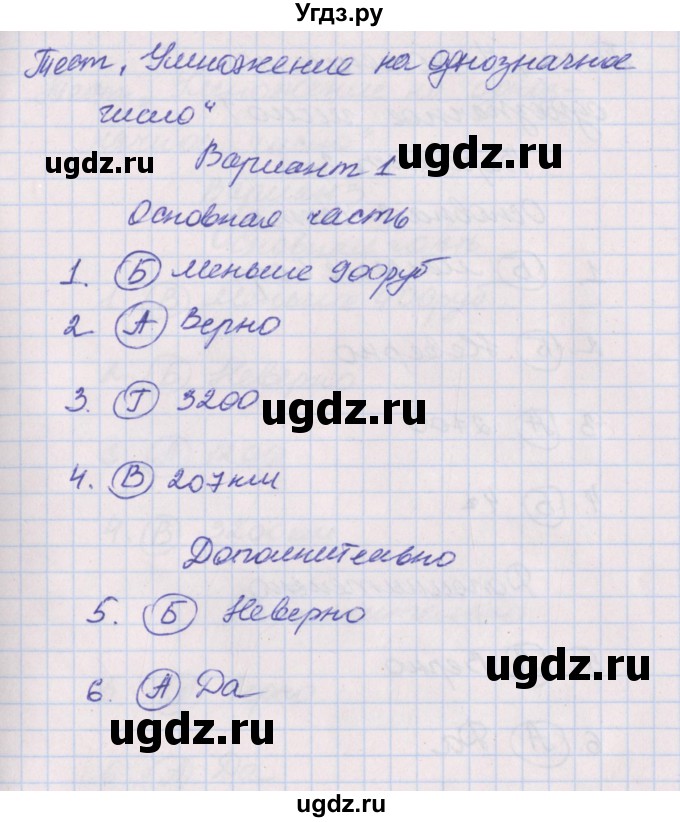 Угдз.ру
Тест „Умножение на однозначное
число"
ugdz.ru
ugdz.ru
Вариант 1
Основная часть
1. Б Меньше 900руб
2 А Верно
ugdz.ru
3. Г 3200
ugdz.ru
4. В 207км
Дополнительно
5. Б Неверно
ugdz.ru
6. А Да
ugdz.ru
ugdz.ru